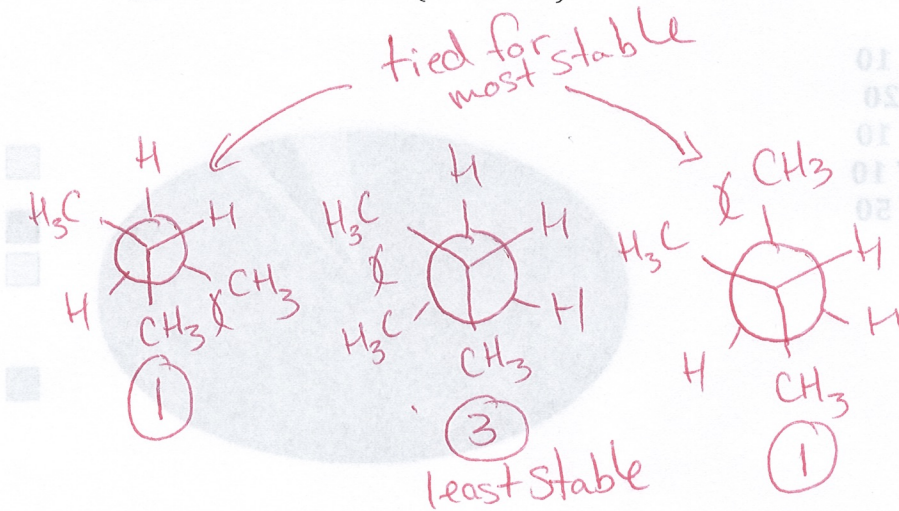 tied for
most stable
H
H₃C
H
H
CH₃
CH₃
1
H
H₃C
H
H₃C
H
CH₃
3
least stable
CH₃
H₃C
H
H
H
CH₃
1
10
20
10
10
50